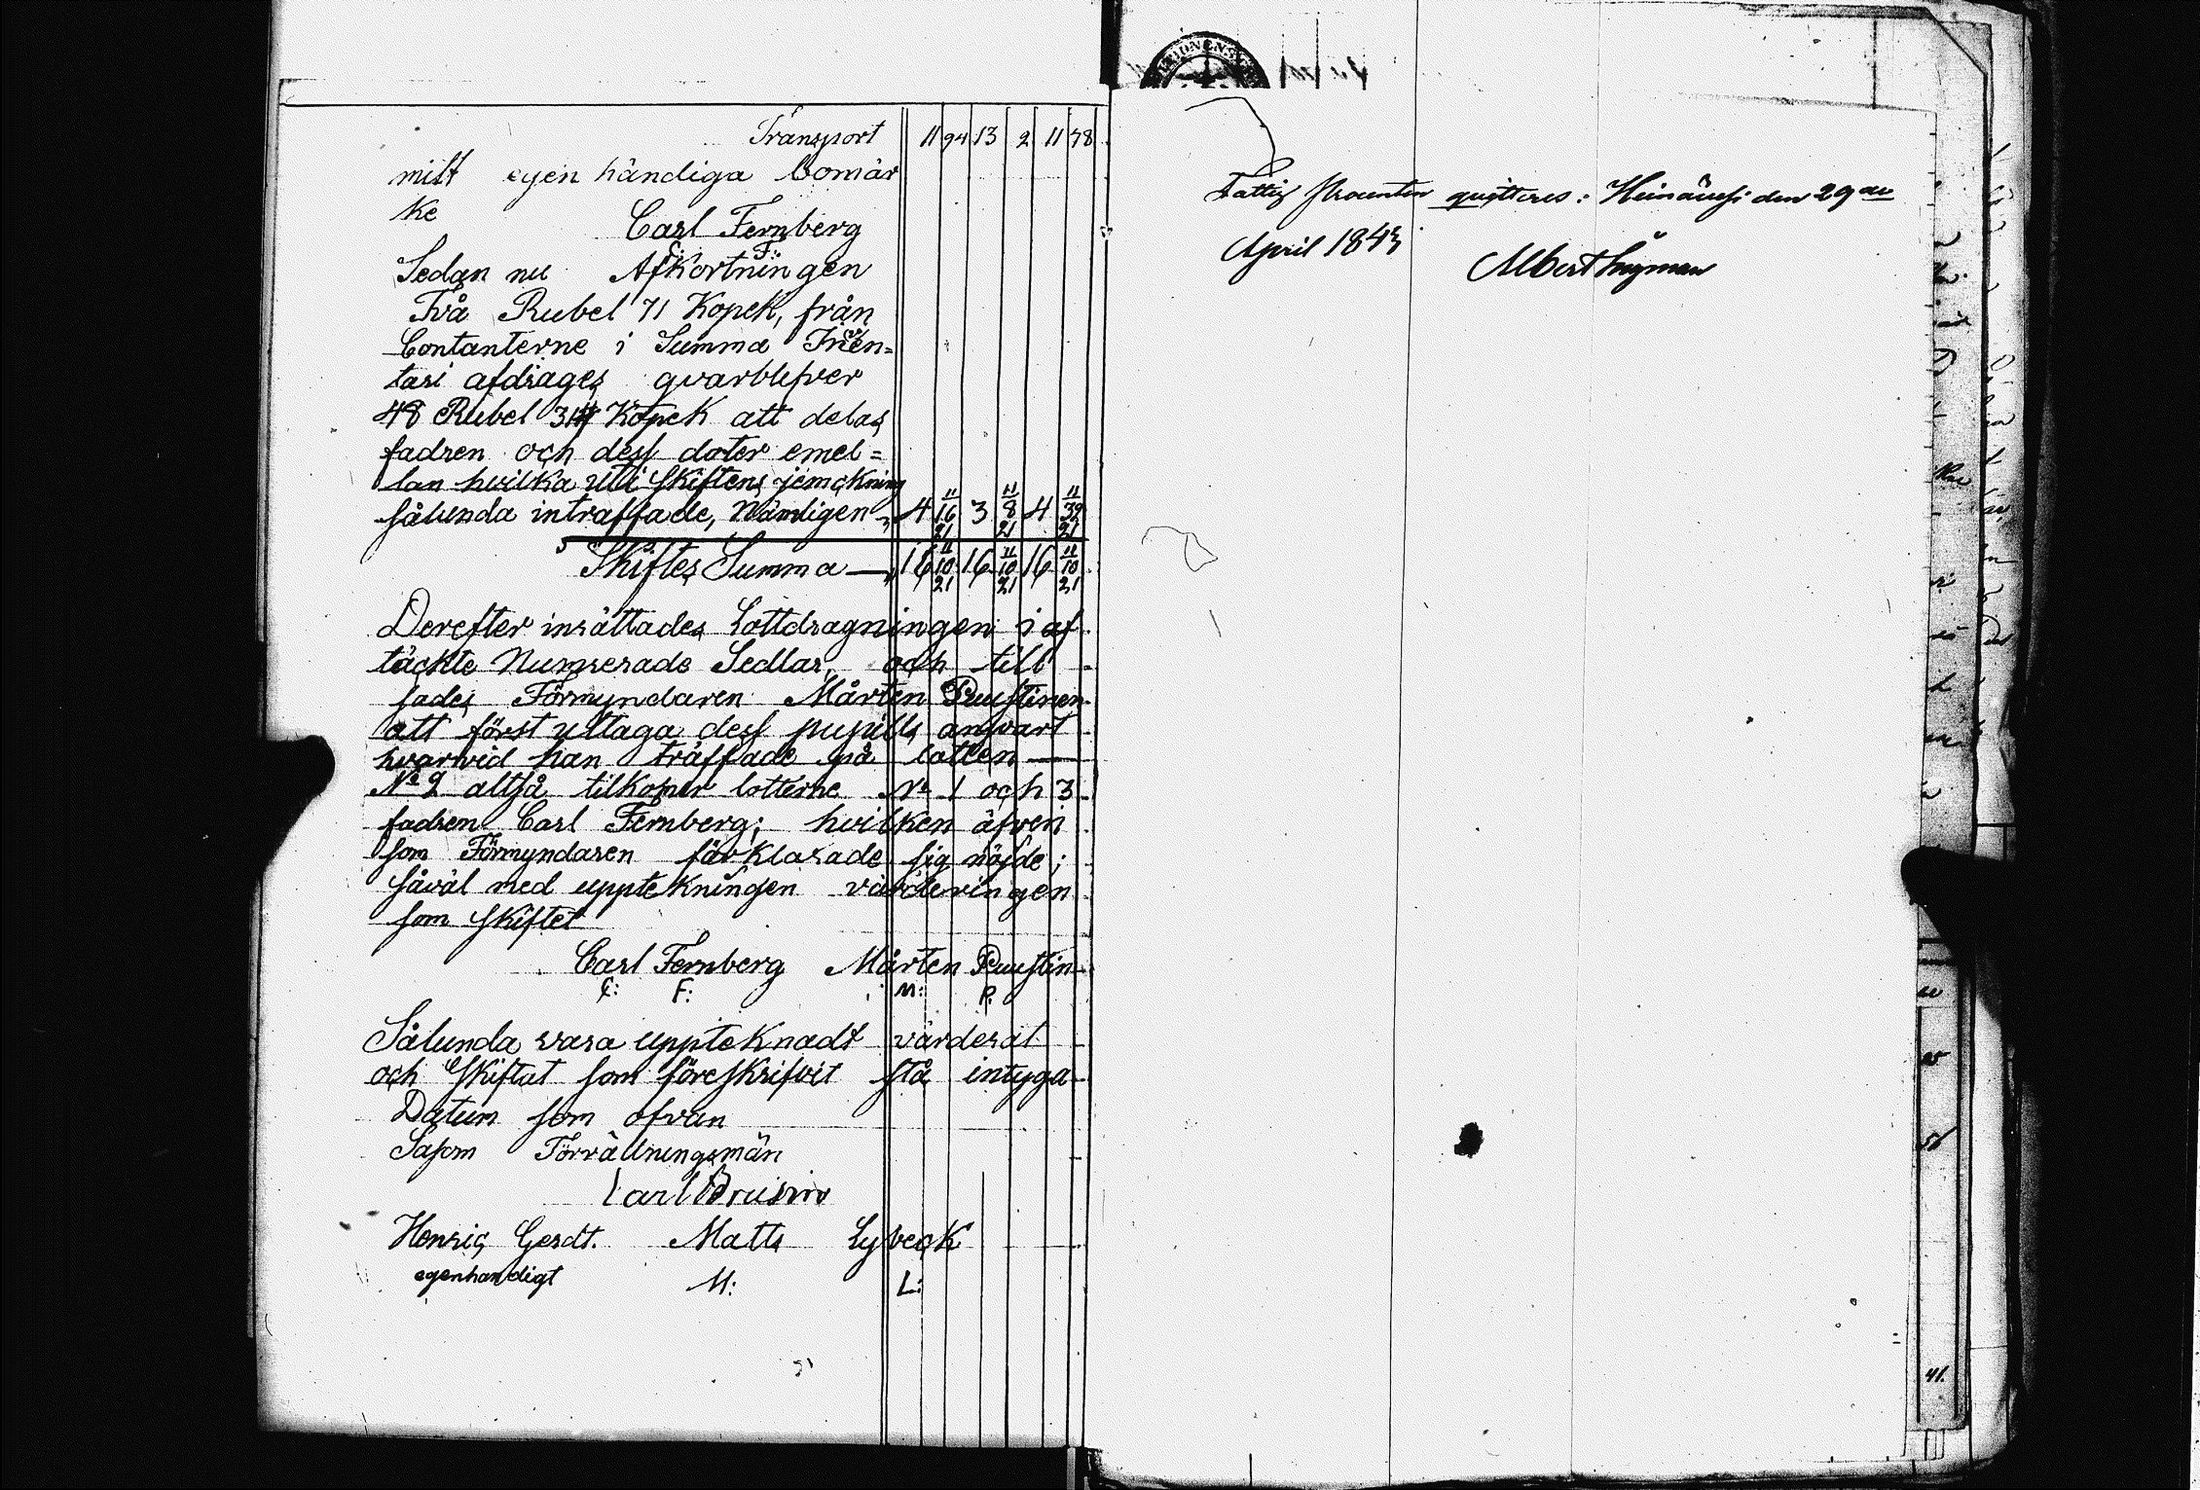 Transport 11 94 13 2 11 78
mitt egen händiga bomär
ke
Carl Fernberg
C: F:
Sedan nu Afkortningen
Två Rubel 71 Kopek, från
Contanterne i Summa Inven=
tari afdrages qvarblifver
48 Rubel 31 Kopek att delas
fadren och dess doter emel=
lan hvilka uti Skiftens jemckning
sålunda intraffade, Nämligen 4 11 16/21 3 11 8/21 4 11 39/21
Skiftes Summa 16 11 10/21 16 11 10/21 16 11 10/21
Derefter inrättades Lottdragningen i af
täckte Numrerade Sedlar, och till
sades Förmyndaren Mårten Puustinen
att först uttaga dess pupills anpart
hvarvid han träffade på lotten
No 2 altså tilkomer lotterne No 1 och 3
fadren Carl Fernberg; hvilken äfven
som Förmyndaren förklarade sig nöjde;
såväl med uppteckningen värderingen
som Skiftet
Carl Fernberg Mårten Puustin
C: F: M: P:
Sålunda vara uppteknadt värderat
och Skiftat som föreskrifvit stå intyga
Datum som ofvan
Såsom Förrättningsmän
Carl Brusiin
Henric Gerdt. Matts Lybeck
egenhandigt M: L:
Fattig procenten quitteres: Heinävesi den 29de
April 1843
Albert Ingman
41.